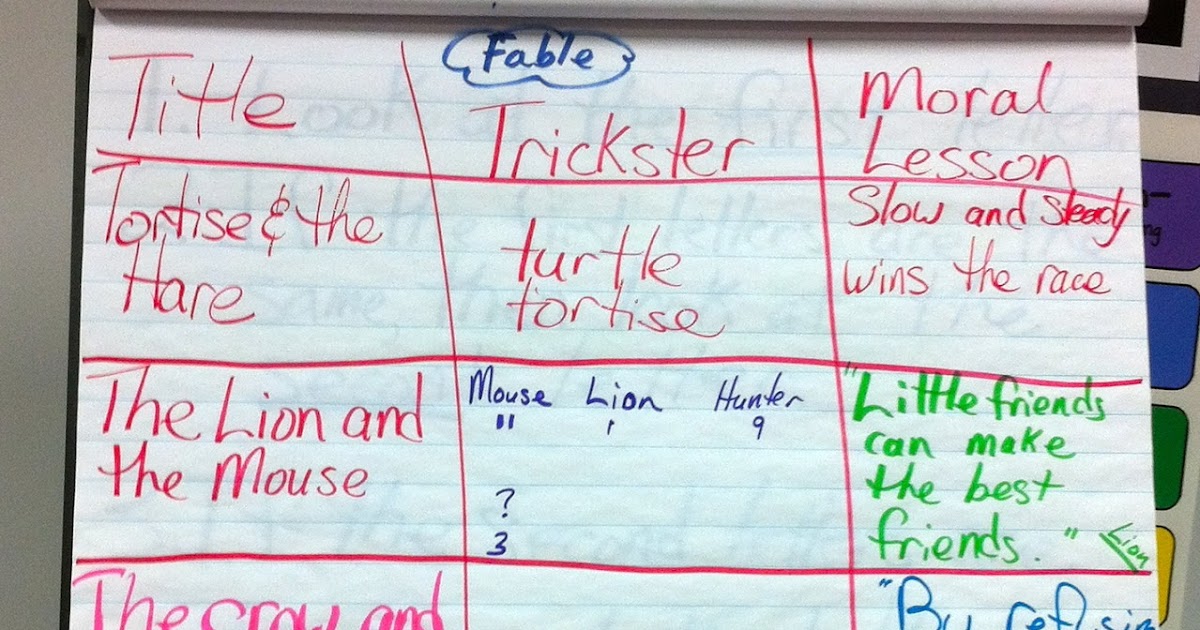 Fable
Title
Trickster
Moral
Lesson
Tortise & the
Hare
turtle
tortise
Slow and Steady
wins the race
The Lion and
the Mouse
Mouse Lion Hunter
11 1 9
?
3
"Little friends
can make
the best
friends." Lion
The crow and
"By